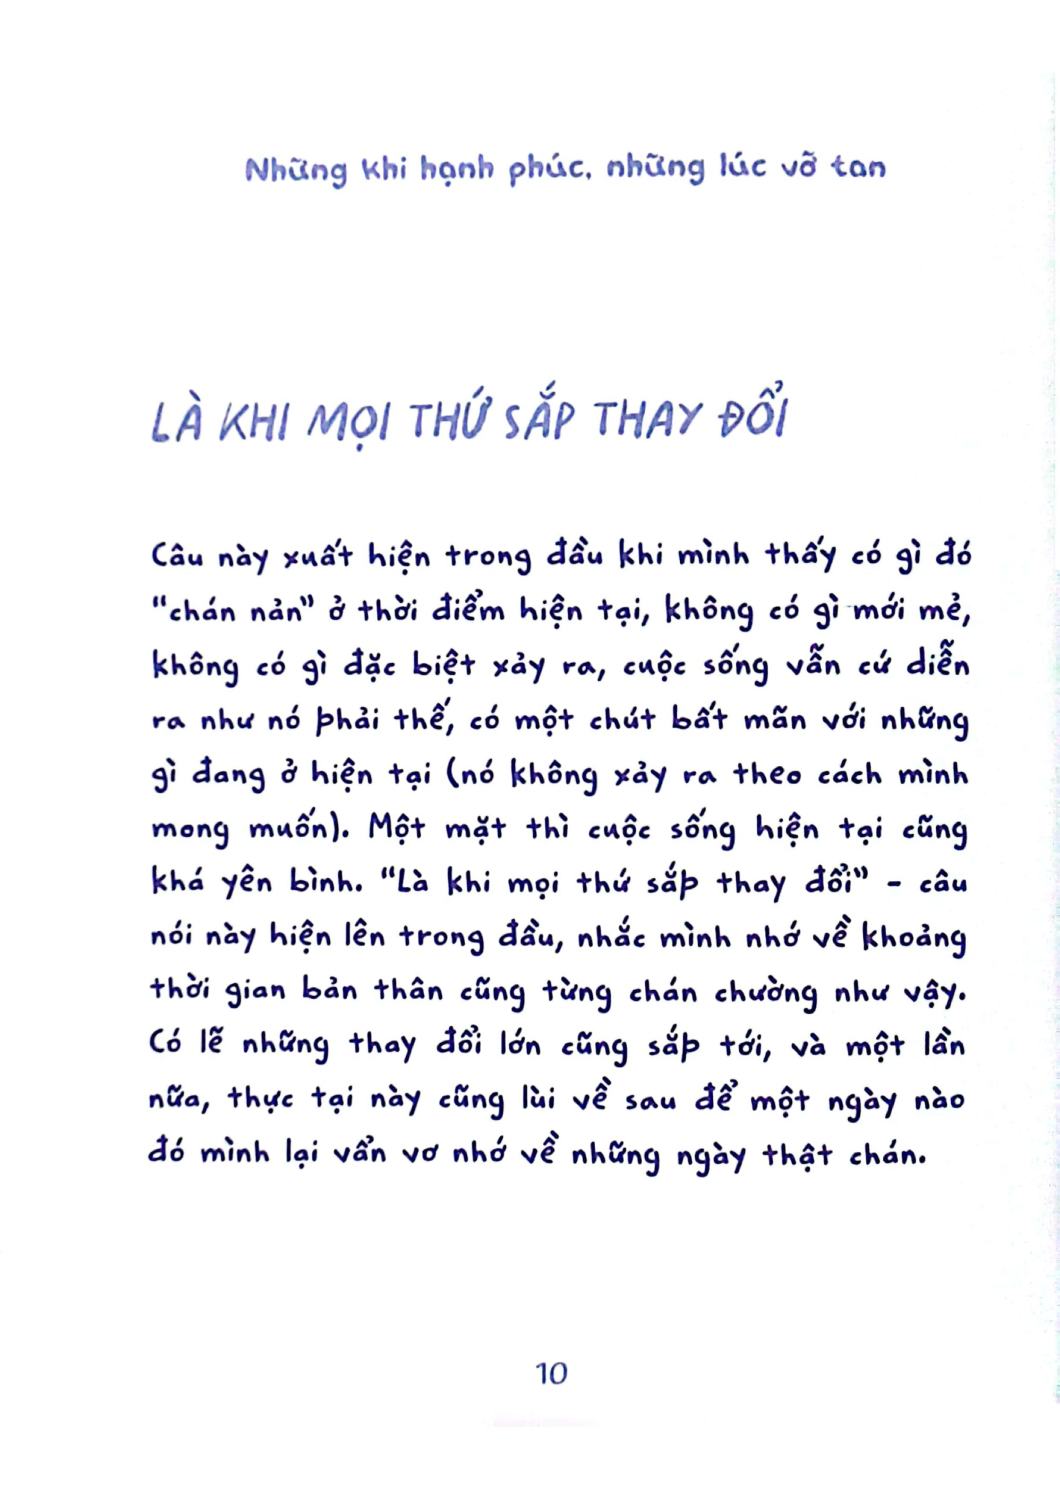 Những khi hạnh phúc, những lúc vỡ tan
LÀ KHI MỌI THỨ SẮP THAY ĐỔI
Câu này xuất hiện trong đầu khi mình thấy có gì đó
"chán nản" ở thời điểm hiện tại, không có gì mới mẻ,
không có gì đặc biệt xảy ra, cuộc sống vẫn cứ diễn
ra như nó phải thế, có một chút bất mãn với những
gì đang ở hiện tại (nó không xảy ra theo cách mình
mong muốn). Một mặt thì cuộc sống hiện tại cũng
khá yên bình. "Là khi mọi thứ sắp thay đổi" - câu
nói này hiện lên trong đầu, nhắc mình nhớ về khoảng
thời gian bản thân cũng từng chán chường như vậy.
Có lẽ những thay đổi lớn cũng sắp tới, và một lần
nữa, thực tại này cũng lùi về sau để một ngày nào
đó mình lại vẩn vơ nhớ về những ngày thật chán.
10